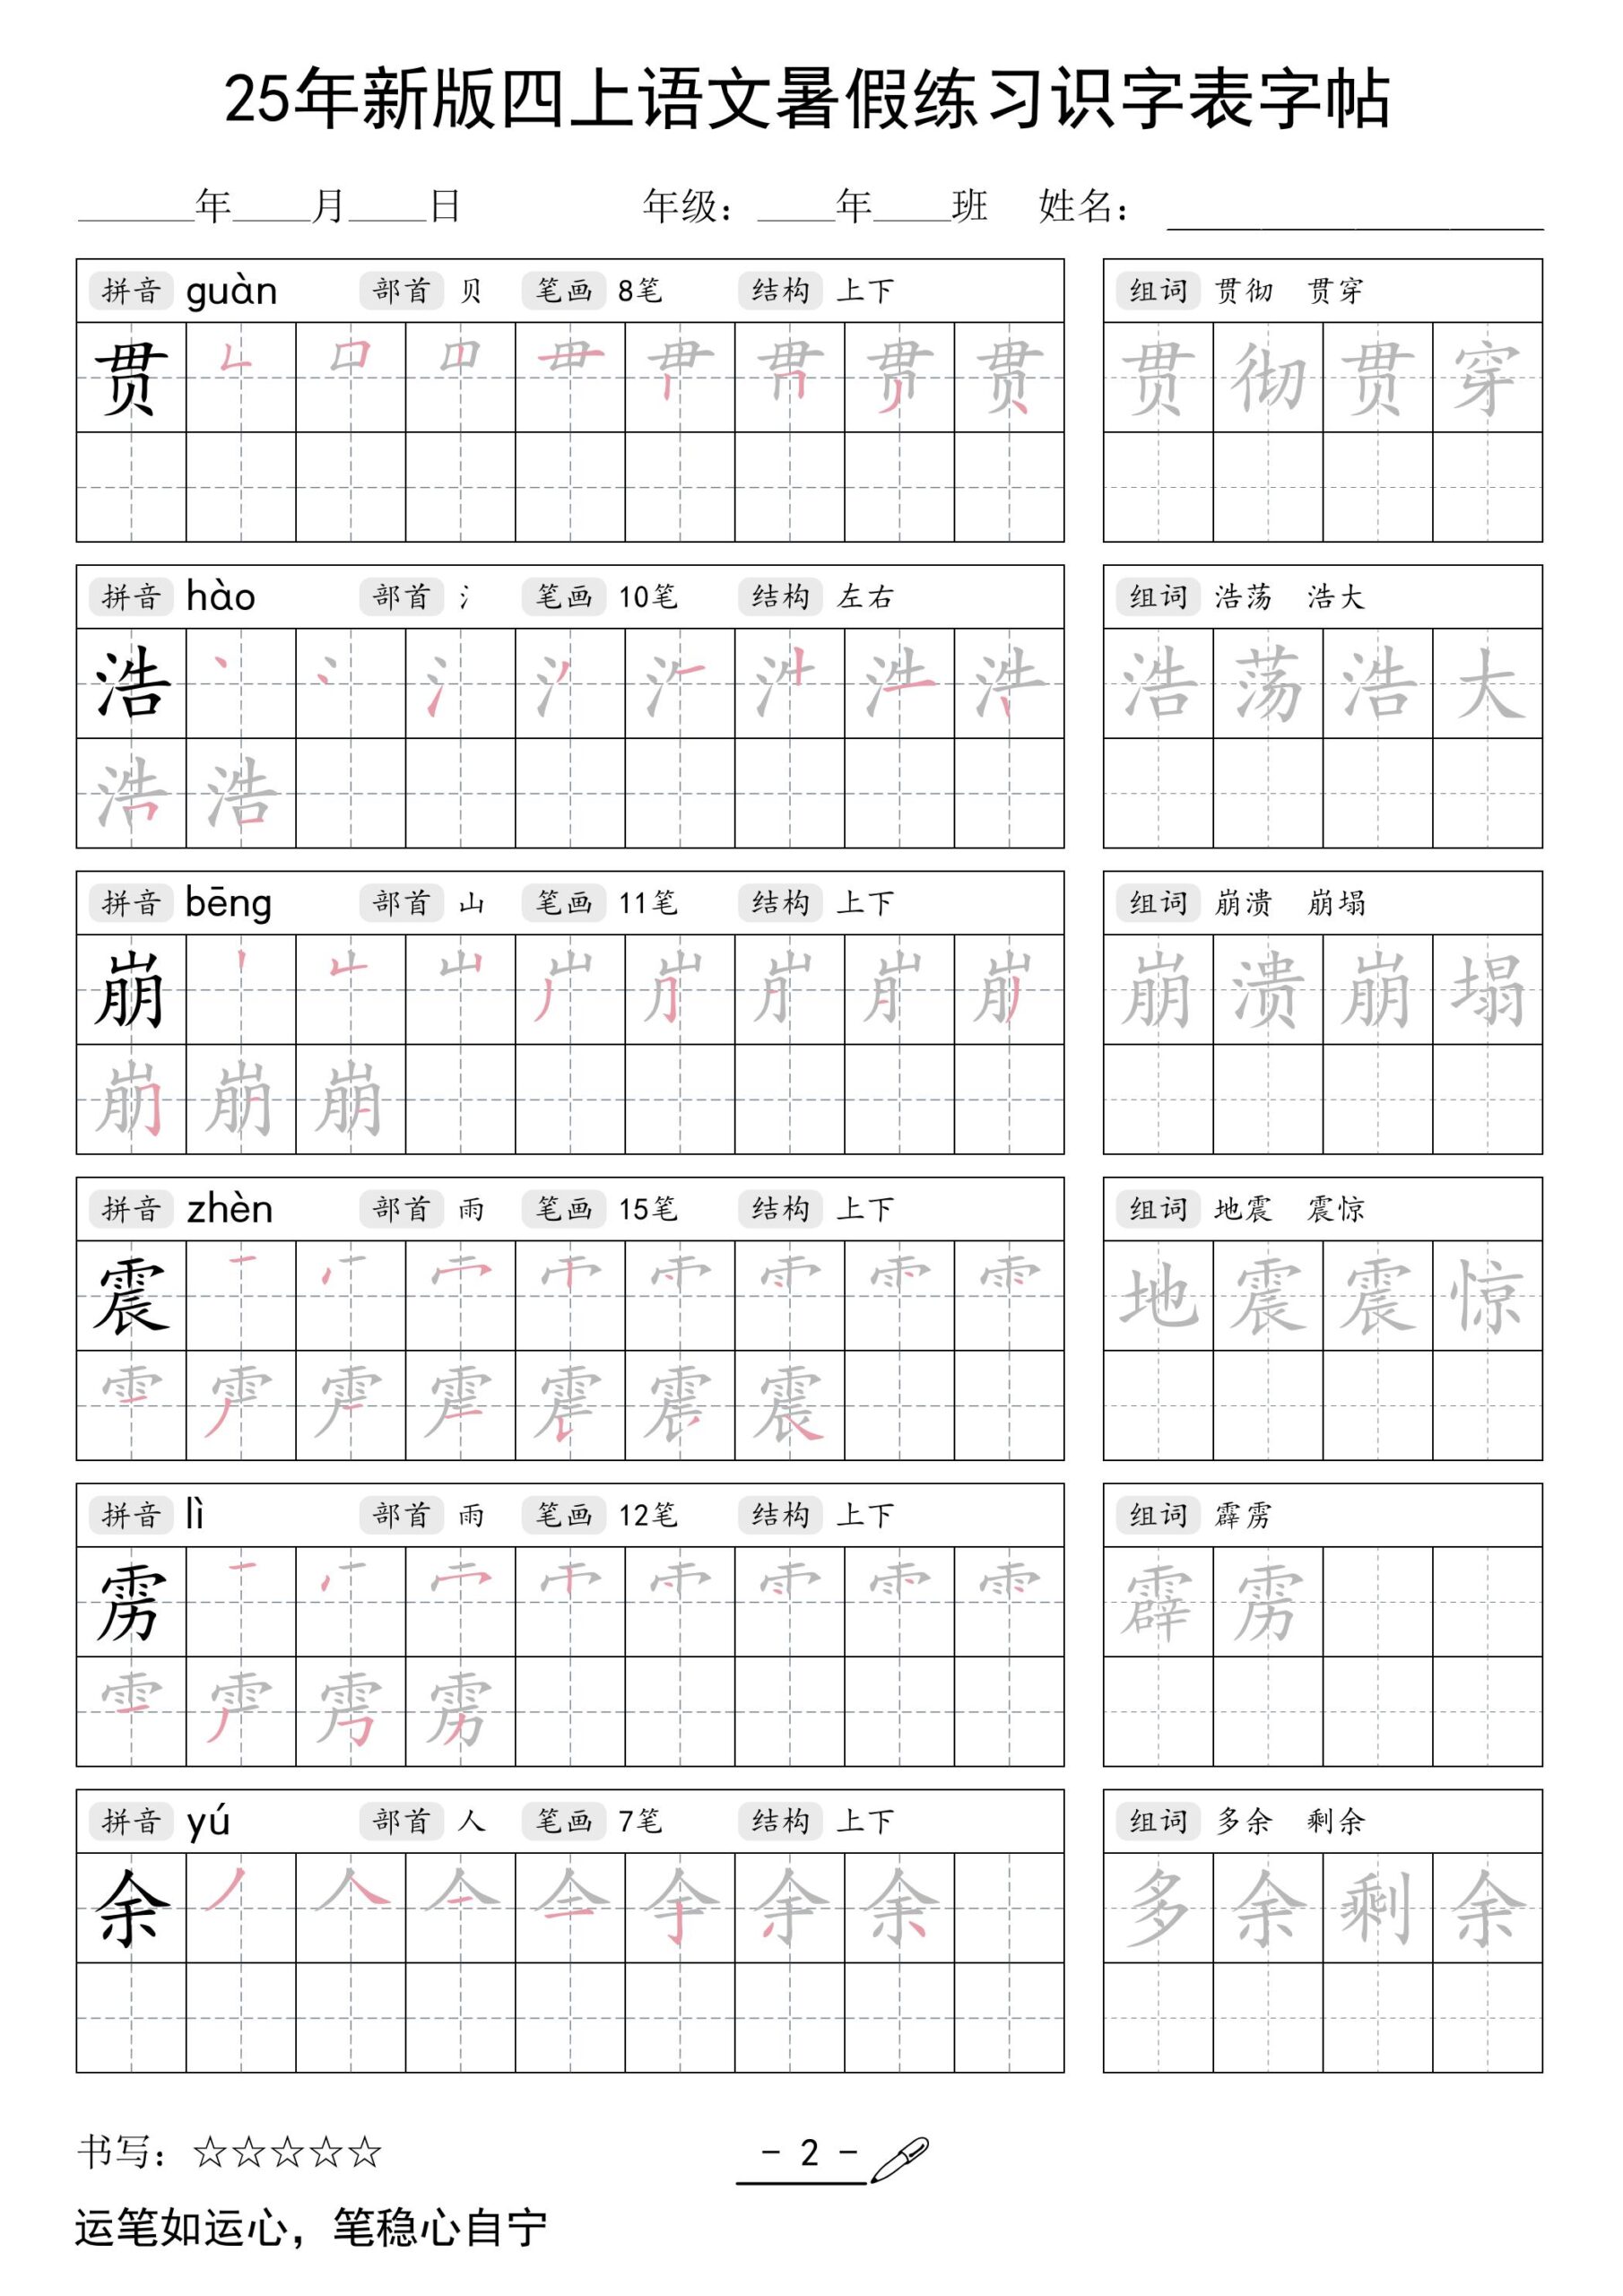 25年新版四上语文暑假练习识字表字帖
______年____月____日 年级：____年____班 姓名：____________________
拼音 guàn 部首 贝 笔画 8笔 结构 上下 组词 贯彻 贯穿
贯 贯彻贯穿
拼音 hào 部首 氵 笔画 10笔 结构 左右 组词 浩荡 浩大
浩 浩荡浩大
浩浩
拼音 bēng 部首 山 笔画 11笔 结构 上下 组词 崩溃 崩塌
崩 崩溃崩塌
崩崩崩
拼音 zhèn 部首 雨 笔画 15笔 结构 上下 组词 地震 震惊
震 地震震惊
震
拼音 lì 部首 雨 笔画 12笔 结构 上下 组词 霹雳
雳 霹雳
雳
拼音 yú 部首 人 笔画 7笔 结构 上下 组词 多余 剩余
余 余 多余剩余
书写：☆☆☆☆☆ - 2 -
运笔如运心，笔稳心自宁